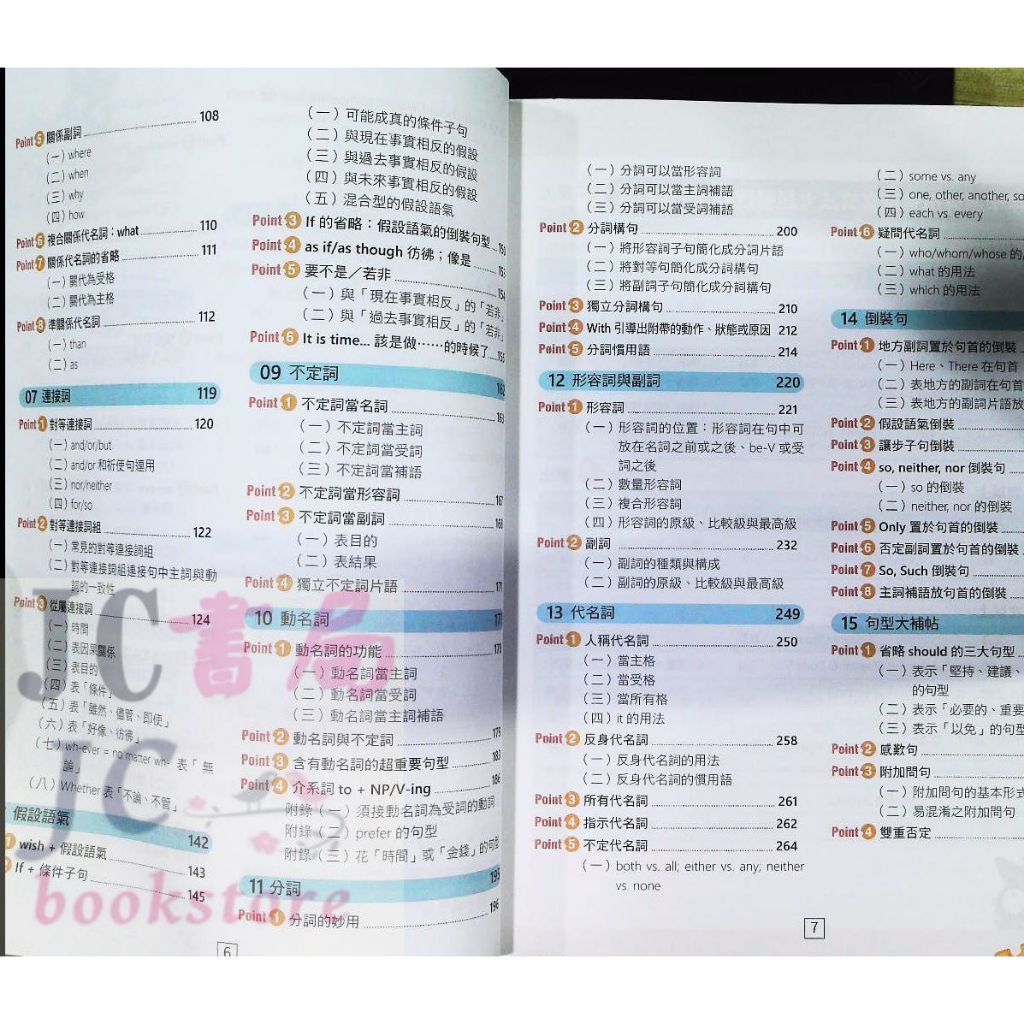 Point 5 關係副詞 108
(一) where
(二) when
(三) why
(四) how
Point 6 複合關係代名詞:what 110
Point 7 關係代名詞的省略 111
(一) 關代為受格
(二) 關代為主格
Point 8 準關係代名詞 112
(一) than
(二) as
07 連接詞 119
Point 1 對等連接詞 120
(一) and/or/but
(二) and/or 和祈使句連用
(三) nor/neither
(四) for/so
Point 2 對等連接詞組 122
(一) 常見的對等連接詞組
(二) 對等連接詞組連接句中主詞與動
詞的一致性
Point 3 從屬連接詞 124
(一) 時間
(二) 表因果關係
(三) 表目的
(四) 表「條件」
(五) 表「雖然、儘管、即使」
(六) 表「好像、彷彿」
(七) wh-ever = no matter wh- 表「無
論」
(八) Whether 表「不論、不管」
假設語氣 142
wish + 假設語氣 143
If + 條件子句 145
(一) 可能成真的條件子句
(二) 與現在事實相反的假設
(三) 與過去事實相反的假設
(四) 與未來事實相反的假設
(五) 混合型的假設語氣
Point 3 If 的省略:假設語氣的倒裝句型
Point 4 as if/as though 彷彿;像是 153
Point 5 要不是/若非 154
(一) 與「現在事實相反」的「若非」
(二) 與「過去事實相反」的「若非」
Point 6 It is time... 該是做……的時候了 155
09 不定詞 162
Point 1 不定詞當名詞 163
(一) 不定詞當主詞
(二) 不定詞當受詞
(三) 不定詞當補語
Point 2 不定詞當形容詞 167
Point 3 不定詞當副詞 168
(一) 表目的
(二) 表結果
Point 4 獨立不定詞片語
10 動名詞
Point 1 動名詞的功能
(一) 動名詞當主詞
(二) 動名詞當受詞
(三) 動名詞當主詞補語
Point 2 動名詞與不定詞 179
Point 3 含有動名詞的超重要句型 183
Point 4 介系詞 to + NP/V-ing 186
附錄(一) 須接動名詞為受詞的動詞
附錄(二) prefer 的句型
附錄(三) 花「時間」或「金錢」的句型
11 分詞 195
Point 1 分詞的妙用 196
6
(一) 分詞可以當形容詞
(二) 分詞可以當主詞補語
(三) 分詞可以當受詞補語
Point 2 分詞構句 200
(一) 將形容詞子句簡化成分詞片語
(二) 將對等句簡化成分詞構句
(三) 將副詞子句簡化成分詞構句
Point 3 獨立分詞構句 210
Point 4 With 引導出附帶的動作、狀態或原因 212
Point 5 分詞慣用語 214
12 形容詞與副詞 220
Point 1 形容詞 221
(一) 形容詞的位置:形容詞在句中可
放在名詞之前或之後、be-V 或受
詞之後
(二) 數量形容詞
(三) 複合形容詞
(四) 形容詞的原級、比較級與最高級
Point 2 副詞 232
(一) 副詞的種類與構成
(二) 副詞的原級、比較級與最高級
13 代名詞 249
Point 1 人稱代名詞 250
(一) 當主格
(二) 當受格
(三) 當所有格
(四) it 的用法
Point 2 反身代名詞 258
(一) 反身代名詞的用法
(二) 反身代名詞的慣用語
Point 3 所有代名詞 261
Point 4 指示代名詞 262
Point 5 不定代名詞 264
(一) both vs. all; either vs. any; neither
vs. none
(二) some vs. any
(三) one, other, another, so
(四) each vs. every
Point 6 疑問代名詞
(一) who/whom/whose 的
(二) what 的用法
(三) which 的用法
14 倒裝句
Point 1 地方副詞置於句首的倒裝
(一) Here、There 在句首
(二) 表地方的副詞在句首
(三) 表地方的副詞片語放
Point 2 假設語氣倒裝
Point 3 讓步子句倒裝
Point 4 so, neither, nor 倒裝句
(一) so 的倒裝
(二) neither, nor 的倒裝
Point 5 Only 置於句首的倒裝
Point 6 否定副詞置於句首的倒裝
Point 7 So, Such 倒裝句
Point 8 主詞補語放句首的倒裝
15 句型大補帖
Point 1 省略 should 的三大句型
(一) 表示「堅持、建議、
的句型
(二) 表示「必要的、重要
(三) 表示「以免」的句型
Point 2 感歎句
Point 3 附加問句
(一) 附加問句的基本形式
(二) 易混淆之附加問句
Point 4 雙重否定
7
JC書局
JC
bookstore